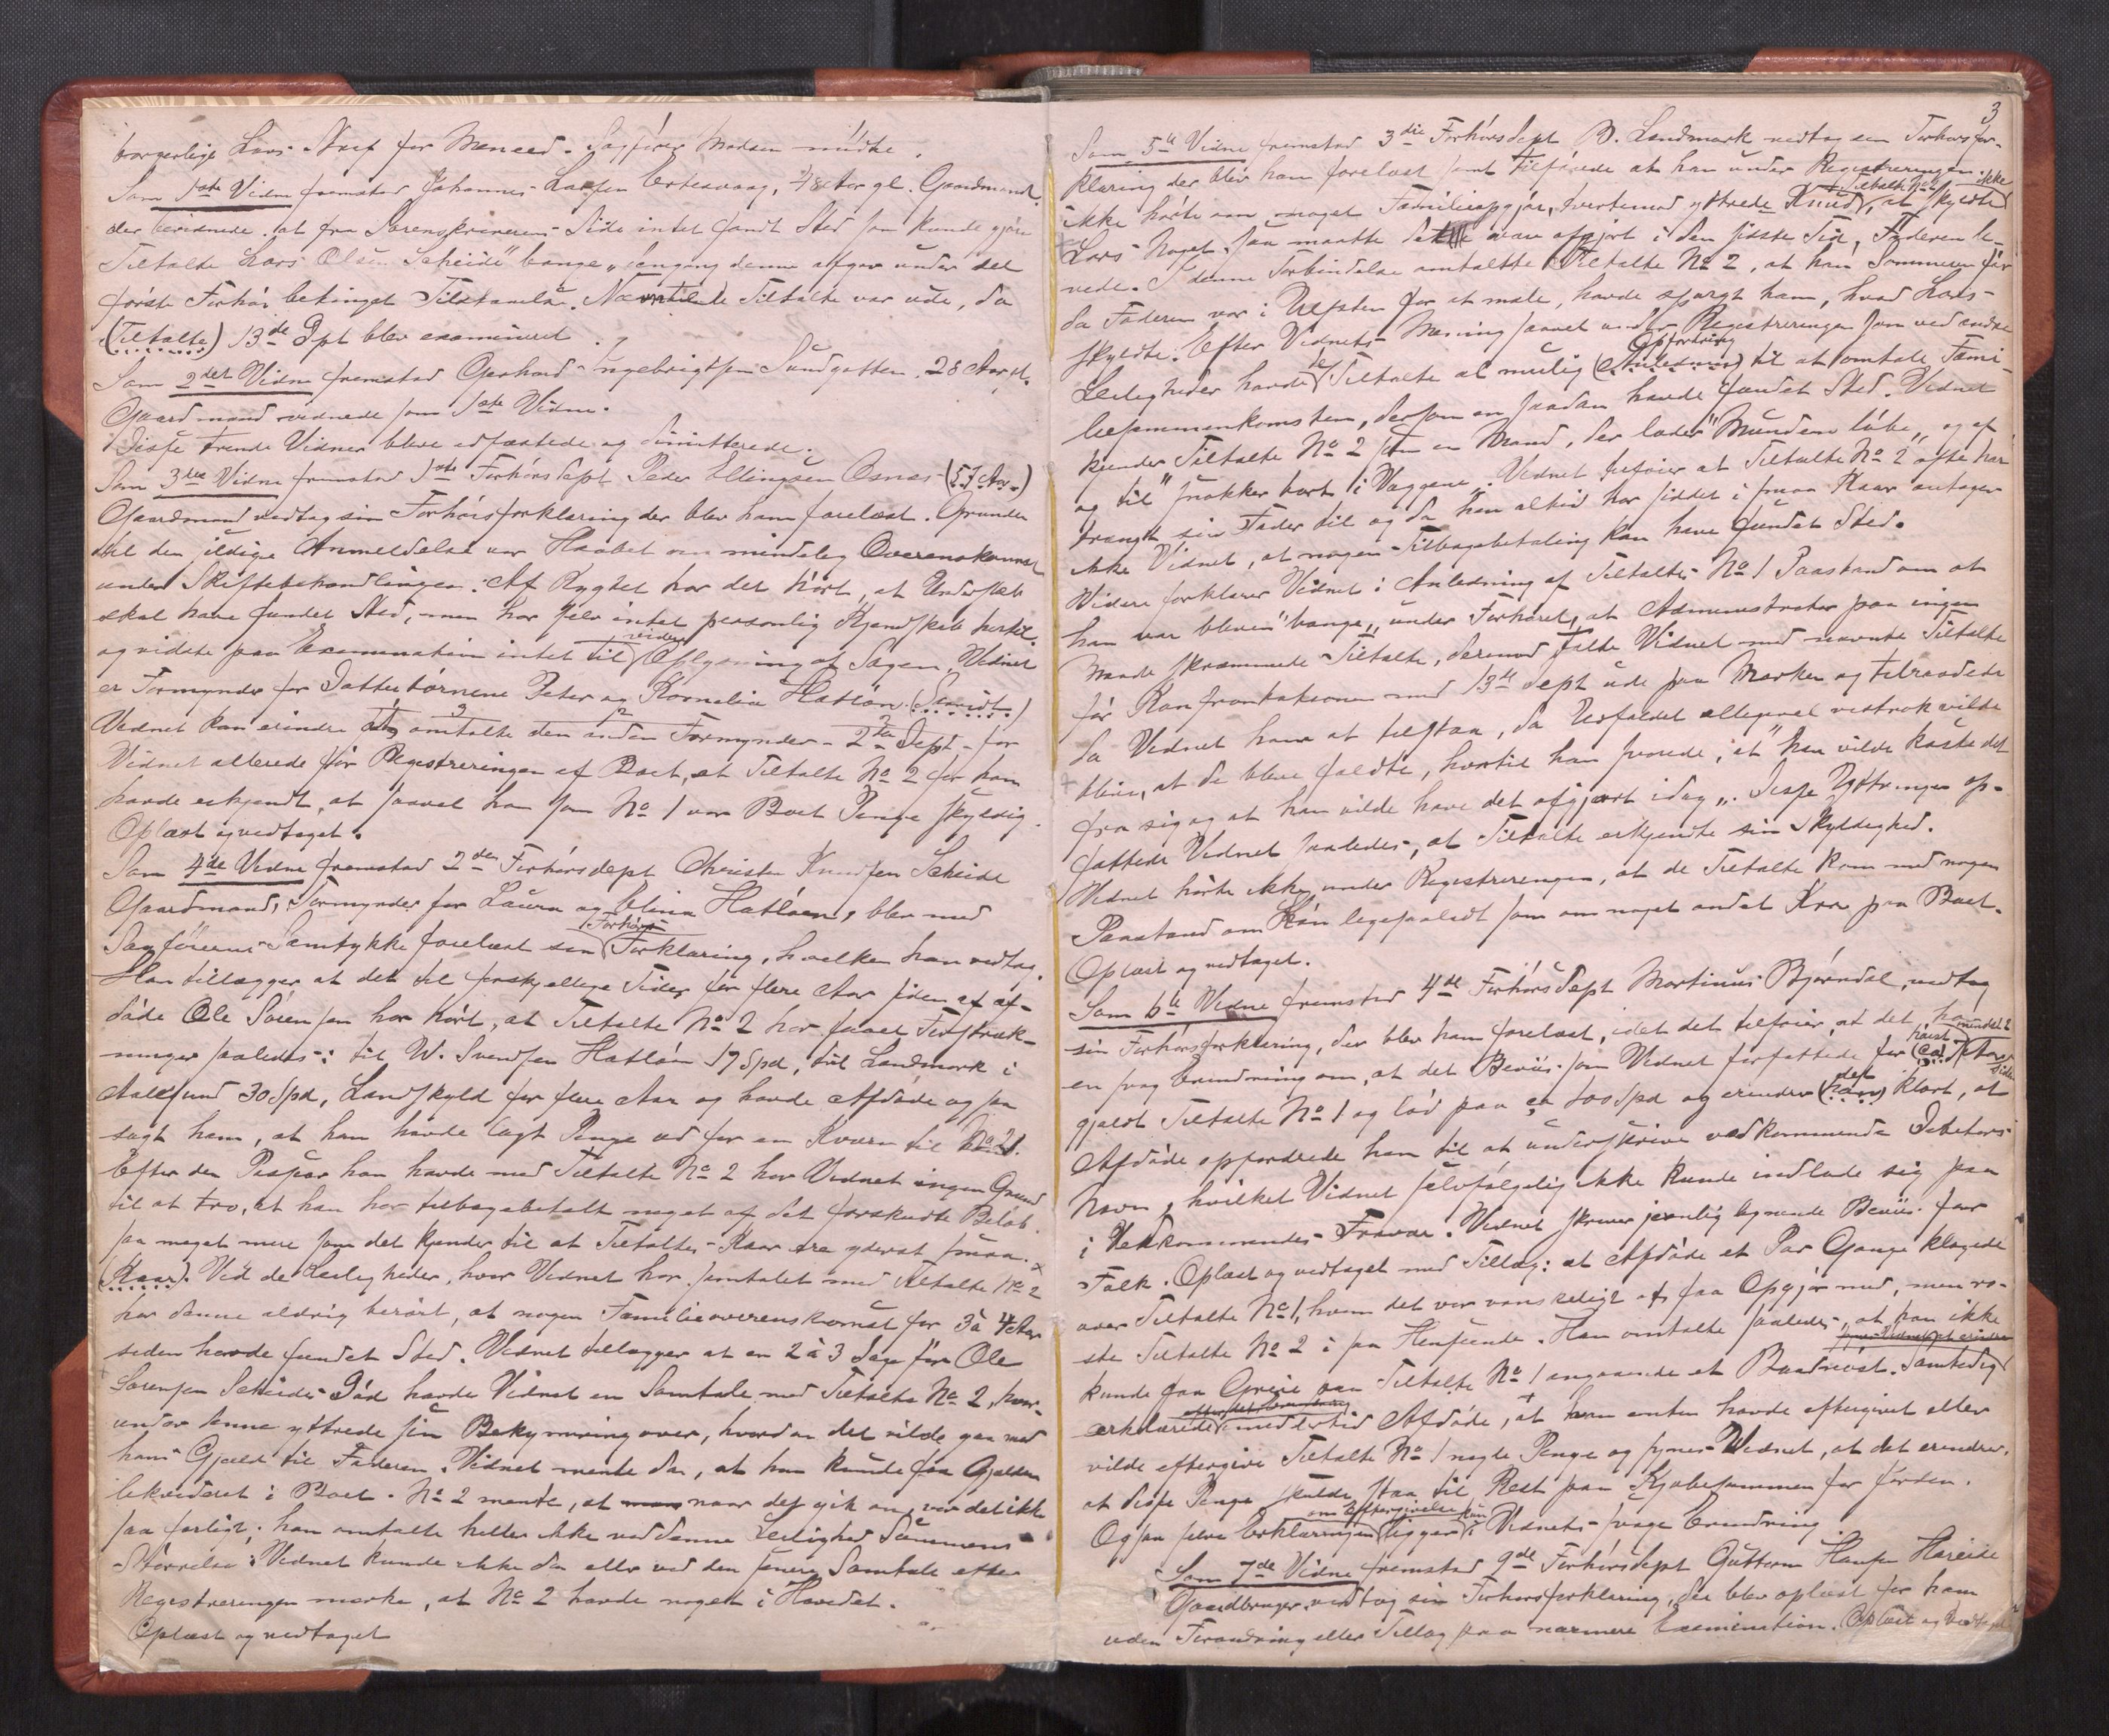 borgerlige Lovs Straf for Meneed. Sagfører Madsen mødte.
Som 1ste Vidne fremstod Johannes Larsen Ertesvaag, Aar gl. Gaardmand,
der bevidnede at fra Sorenskriverens Side intet fandt Sted som kunde gjøre
Tiltalte Lars Olsen Scheide "bange" dengang denne afgav under det
første Forhør betinget Tilstaaelse. Tiltalte var ude, da
(Tiltalte) 13de Dpt blev examineret.
Som 2det Vidne fremstod Gerhard Ingebrigtsen Sundgotten 28 Aar gl.
Gaardmand vidnede som 1ste Vidne.
Disse trende Vidner bleve edfæstede og dimitterede.
Som 3die Vidne fremstod 1ste Forhørsdept Peder Ellingsen Osnes (57 Aar)
Gaardmand vedtog sin Forhørsforklaring der blev ham forelæst. Grunden
til den sildige Anmeldelse var Haabet om mindelig Overenskomst
under Skiftebehandlingen. Af Rygtet har det hørt, at Underslæb
skal have fundet Sted, men har selv intet personlig Kjendskab hertil
og vidste paa Examination intet til videre Oplysning af Sagen. Vidnet
er Formynder for Datterbørnene Peter og Kornelia Hatløn.
Vidnet kan erindre at omtalte den anden Formynder - 2det Dept - for
Vidnet allerede før Registreringen af Boet, at Tiltalte No 2 for ham
havde erkjendt, at saavel han som No 1 var Boet Penge skyldig.
Oplæst og vedtaget.
Som 4de Vidne fremstod 2den Forhørsdept Christen Knudsen Scheide
Gaardmand, Formynder for Laura og Elina Hatløen, blev med
Sagførernes Samtykke forelæst sin Forhørs Forklaring, hvilken han vedtog.
Han tillægger at det til forskjellige Tider for flere Aar siden af af-
døde Ole Sørensen har hørt, at Tiltalte No 2 har faaet Forstræk-
ninger saaledes: til W. Svendsen Hatløn 17 Spd, til Landmark i
Aalesund 30 Spd, Landskyld for flere Aar og havde Afdøde ogsaa
sagt ham, at han havde lagt Penge ud for en Kværn til No 2.
Efter den han havde med Tiltalte No 2 har Vidnet ingen Grund
til at tro, at han har tilbagebetalt noget af det forskudte Beløb
saa meget mere som det kjender til at Tiltaltes Kaar ere yderst smaa.
(Kaar). Ved de Leiligheder, hvor Vidnet har samtalet med Tiltalte No 2
har denne aldrig berørt, at nogen Familieoverenskomst for 3 à 4 Aar
siden havde fundet Sted. Vidnet tillægger at en 2 à 3 Dage før Ole
Sørensen Scheides Død havde Vidnet en Samtale med Tiltalte No 2, hvor-
under denne yttrede sin Bekymring over, hvordan det vilde gaa med
hans Gjæld til Faderen. Vidnet mente da, at han kunde faa Gjælden
likvideret i Boet. No 2 mente, at naar det gik an, var det ikke
saa farligt; han omtalte heller ikke ved denne Leilighed Summens
Størrelse. Vidnet kunde ikke da eller ved den senere Samtale efter
Registreringen mærke, at No 2 havde noget i Hovedet.
Oplæst og vedtaget
3
Som 5te Vidne fremstod 3die Forhørsdept B. Landmark vedtog sin Forhørsfor-
klaring der blev ham forelæst samt tilføiede at han under Registreringen
ikke hørte om noget Familieopgjør, hvorimod yttrede Tiltalte No 2 Knud, at skyldte ikke
Lars noget saa maatte det være afgjort i den sidste Tid, Faderen le-
vede. I denne Forbindelse omtalte Tiltalte No 2, at han Sommeren før
da Faderen var i Ulfsten for at male, havde spurgt ham, hvad Lars
skyldte. Efter Vidnets Mening saavel under Registreringen som ved andre
Leiligheder havde de Tiltalte al mulig (Anledning) Opfordring til at omtale Fami-
liesammenkomsten, dersom en saadan havde fundet Sted. Vidnet
kjender Tiltalte No 2 som en Mand, der lader "Munden løbe" og af
og til "snakker bort i Væggene". Vidnet tilføier at Tiltalte No 2 ofte har
trængt sin Fader til og da han altid har siddet i smaa Kaar antager
ikke Vidnet, at nogen Tilbagebetaling kan have fundet Sted.
Videre forklarer Vidnet i Anledning af Tiltaltes No 1 Paastand om at
han var bleven "bange" under Forhøret, at Administrator paa ingen
Maade skræmmede Tiltalte, derimod talte Vidnet med nævnte Tiltalte
før Konfrontationen med 13de Dept ude paa Marken og tilraadede
da Vidnet ham at tilstaa, da Udfaldet alligevel vistnok vilde
blive, at de bleve fældte, hvortil han svarede, at "han vilde kaste det
fra sig og at han vilde have det afgjort idag". Disse Yttringer op-
fattede Vidnet saaledes, at Tiltalte erkjendte sin Skyldighed.
Vidnet hørte ikke under Registreringen, at de Tiltalte kom med nogen
Paastand om Løn ligesaalidt som om noget andet Krav paa Boet.
Oplæst og vedtaget.
Som 6te Vidne fremstod 4de Forhørsdept Martinus Bjørndal, vedtog
sin Forhørsforklaring, der blev ham forelæst, idet det tilføier, at det har
en svag Erindring om, at det Beviis som Vidnet forfattede for (ca) mindst 2 Aar siden
gjaldt Tiltalte No 1 og lød paa ca 100 Spd og erindrer (han) det klart, at
Afdøde opfordrede ham til at underskrive vedkommende Debitors
Navn, hvilket Vidnet selvfølgelig ikke kunde indlade sig paa
i Vedkommendes Fravær. Vidnet skriver jevnlig lignende Beviis for
Folk. Oplæst og vedtaget med Tillæg: at Afdøde et Par Gange klagede
over Tiltalte No 1, hvem det var vanskeligt at faa Opgjør med, men ro-
ste Tiltalte No 2 i saa Henseende. Han omtalte saaledes, at han ikke
kunde faa Greie paa Tiltalte No 1 angaaende et Baadnøst. Samtidig
erklærede imidlertid Afdøde, at han enten havde eftergivet eller
vilde eftergive Tiltalte No 1 nogle Penge og synes Vidnet, at det erindrer,
at disse Penge skulde staa til Rest paa Kjøbesummen for Jorden.
Ogsaa selve Erklæringen om Eftergivelse ligger kun i Vidnets svage Erindring
Som 7de Vidne fremstod 9de Forhørsdept Guttorm Hansen Hareide
Gaardbruger vedtog sin Forhørsforklaring, der blev oplæst for ham
uden Forandring eller Tillæg paa nærmere Examination. Oplæst og vedtaget